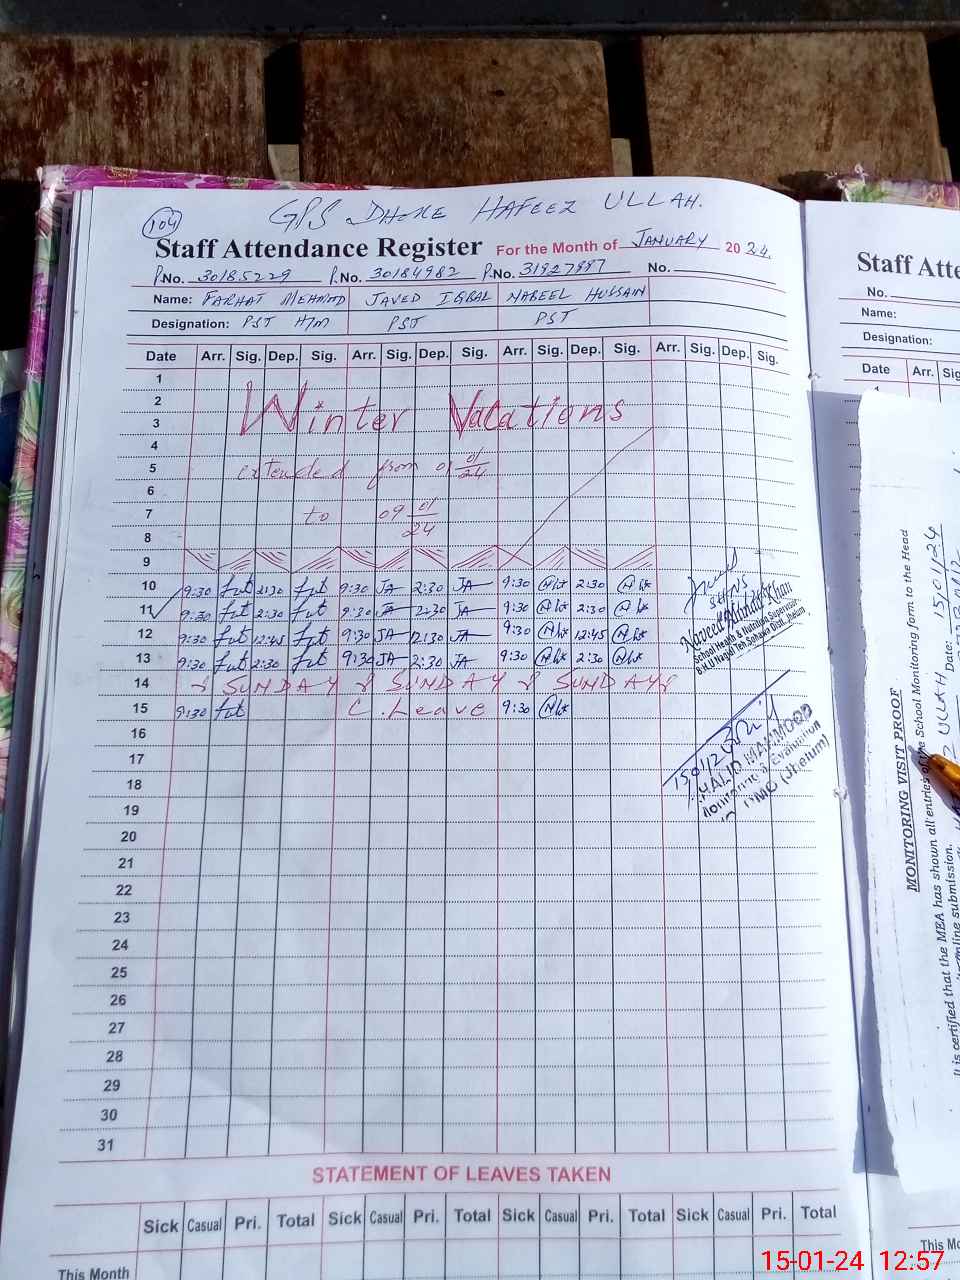 104
GPS DHOKE HAFEEZ ULLAH.
Staff Attendance Register For the Month of JANUARY 2024.
P.No. 30185229 P.No. 30184982 P.No. No.
Name: FARHAT MEHMOOD JAVED IQBAL NABEEL HUSSAIN
Designation: PST H/M PST PST
Date Arr. Sig. Dep. Sig. Arr. Sig. Dep. Sig. Arr. Sig. Dep. Sig. Arr. Sig. Dep. Sig.
1
2
3 Winter Vacations
4
5 extended from 01 01/24
6
7 to 09 01/24
8
9
10 9:30 2:30 9:30 JA 2:30 JA 9:30 2:30
11 9:30 2:30 9:30 JA 2:30 JA 9:30 2:30
12 9:30 12:45 9:30 JA 12:30 JA 9:30 12:45
13 9:30 2:30 9:30 JA 2:30 JA 9:30 2:30
14 SUNDAY SUNDAY SUNDAY
15 9:30 C. Leave 9:30
16
17
18
19
20
21
22
23
24
25
26
27
28
29
30
31
SH&NS
Naveed Khan
School Health & Nutrition Supervisor
B.H.U Nagial Teh.Sohawa Distt. Jhelum
15/01/24
KHALID MAHMOOD
Monitoring & Evaluation
(Jhelum)
STATEMENT OF LEAVES TAKEN
Sick Casual Pri. Total Sick Casual Pri. Total Sick Casual Pri. Total Sick Casual Pri. Total
This Month
Staff Atte
No.
Name:
Designation:
Date Arr. Sig
1
MONITORING VISIT PROOF
It is certified that the MEA has shown all entries of the School Monitoring form to the Head
online submission.
ULLAH Date: 15/01/24
This Mo
15-01-24 12:57